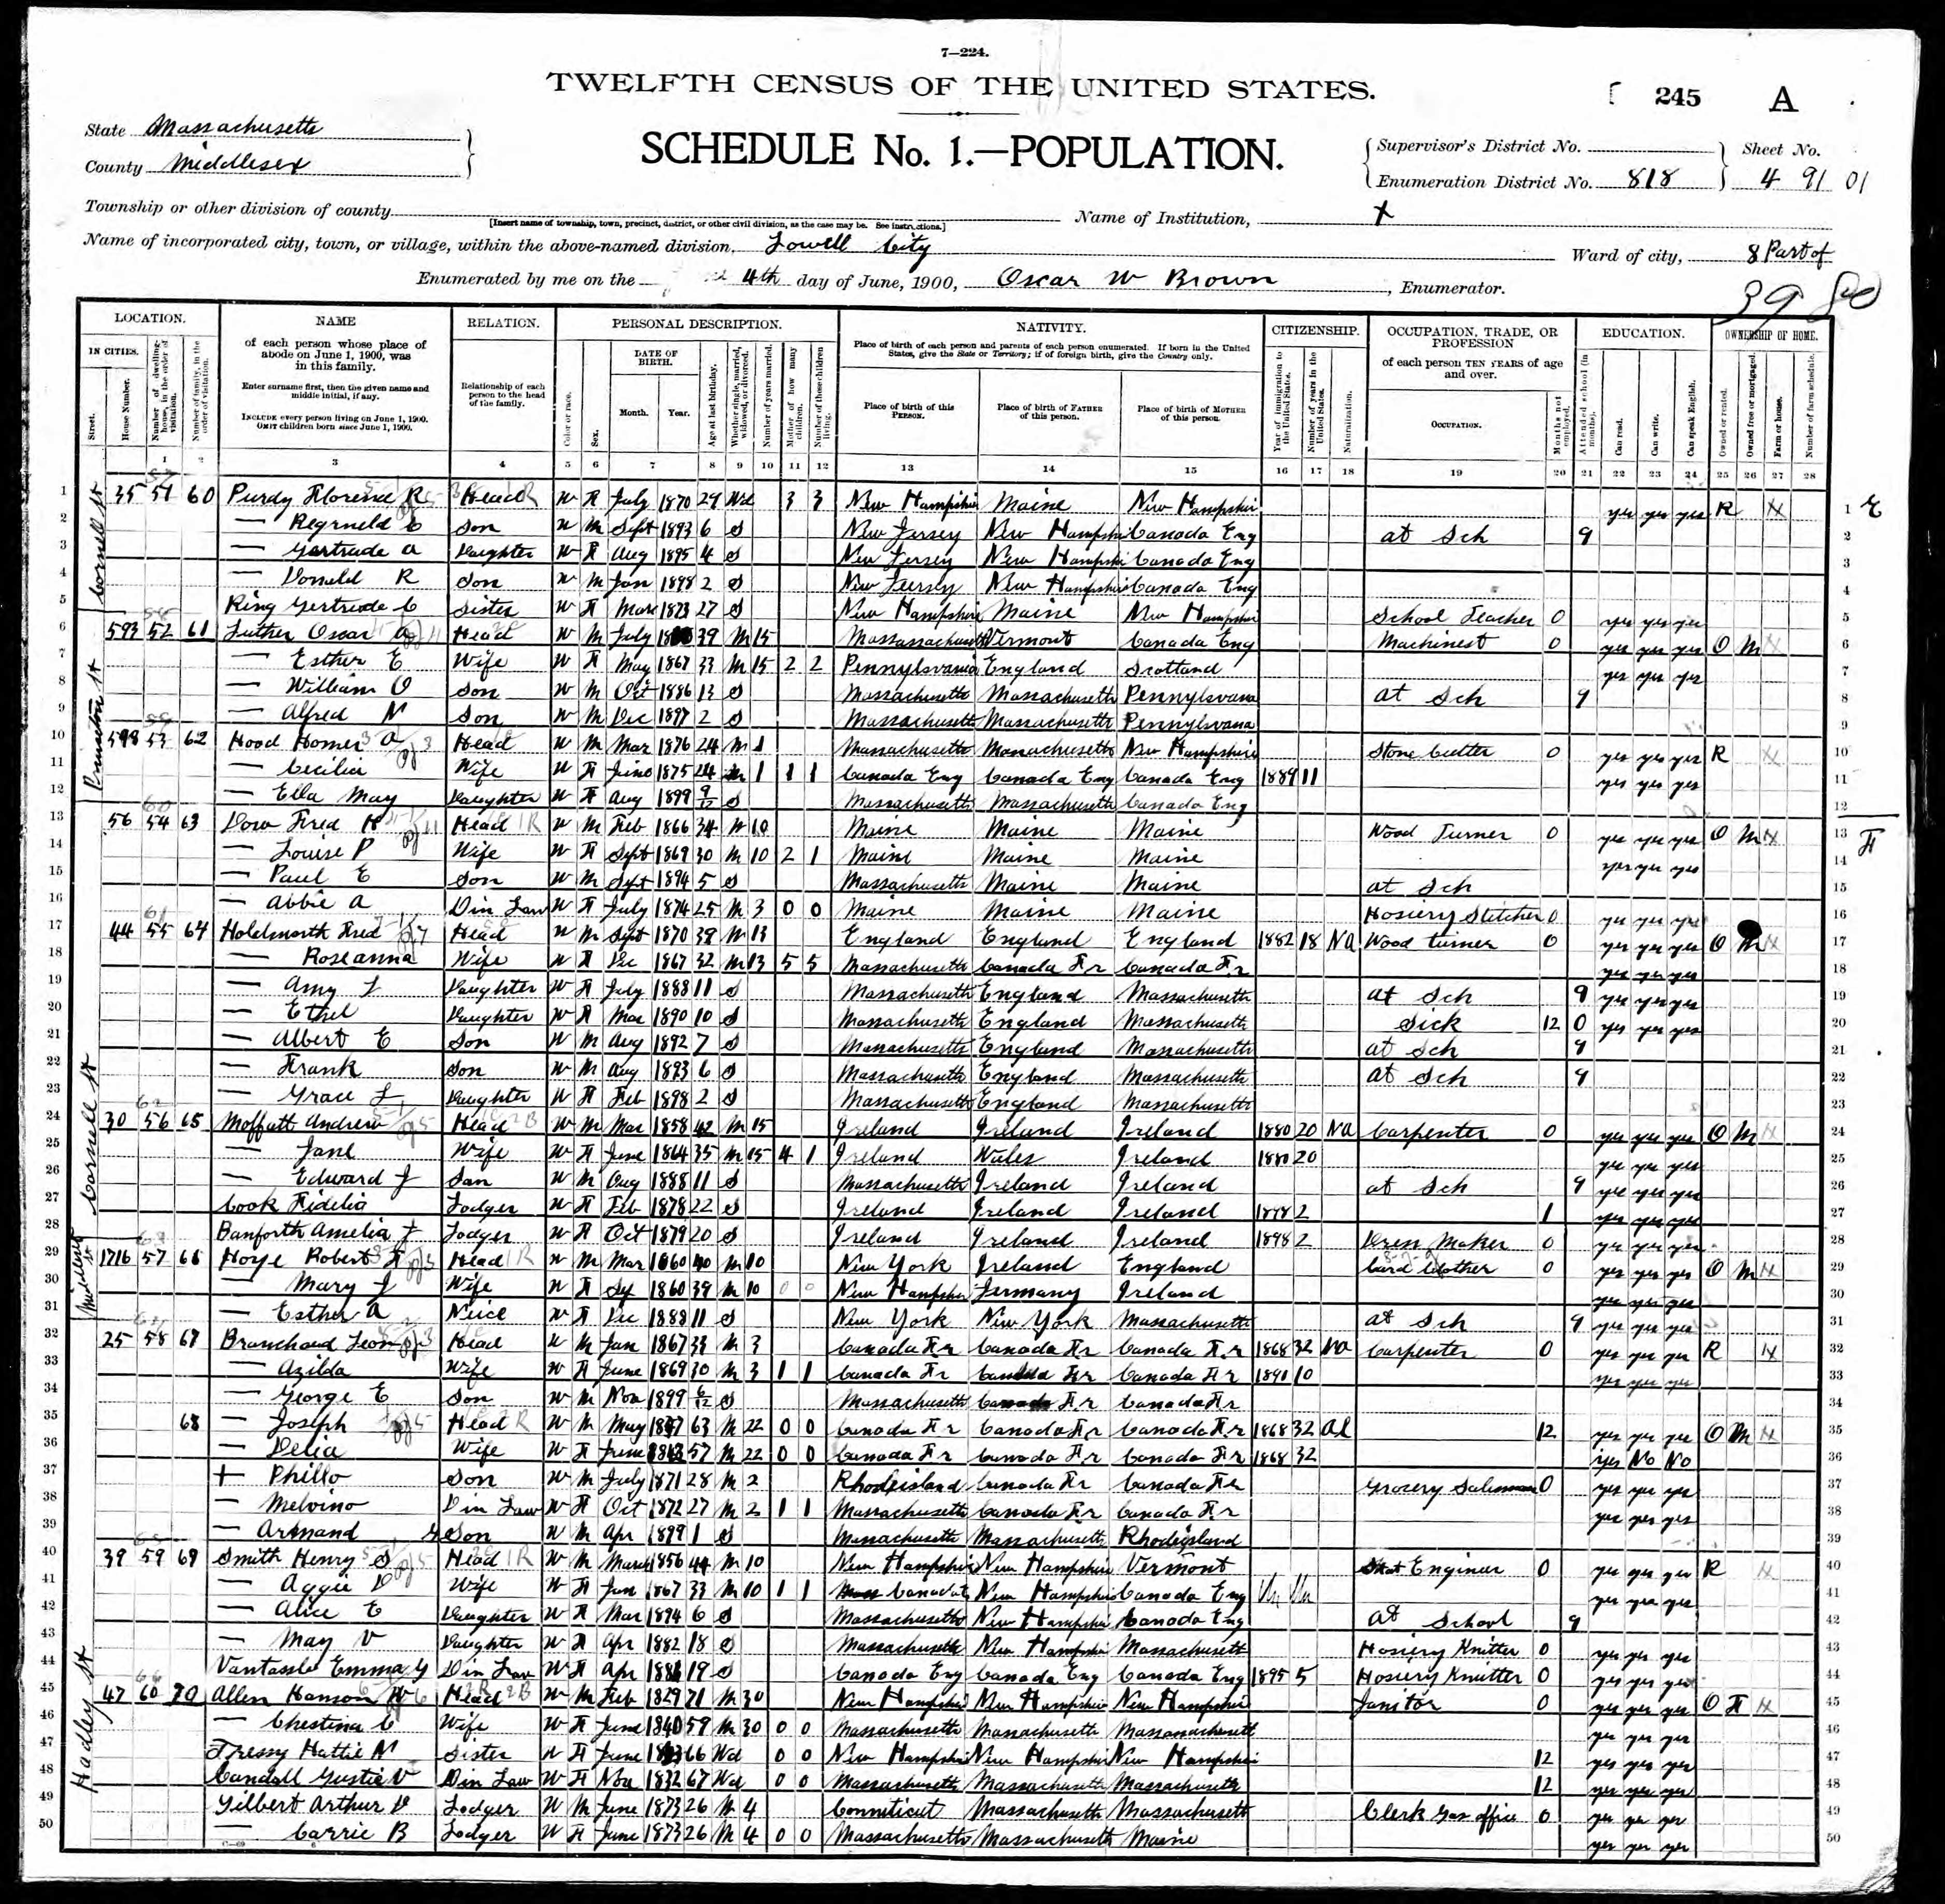 7—224.
TWELFTH CENSUS OF THE UNITED STATES.
245 A
State Massachusetts
County Middlesex
SCHEDULE No. 1.—POPULATION.
Supervisor's District No. Sheet No.
Enumeration District No. 818 4
Township or other division of county
[Insert name of township, town, precinct, district, or other civil division, as the case may be. See instructions.]
Name of Institution, X
Name of incorporated city, town, or village, within the above-named division, Lowell City
Ward of city, 8 Part of
Enumerated by me on the 4th day of June, 1900, Oscar W Brown, Enumerator.
LOCATION. NAME RELATION. PERSONAL DESCRIPTION. NATIVITY. CITIZENSHIP. OCCUPATION, TRADE, OR PROFESSION EDUCATION. OWNERSHIP OF HOME.
IN CITIES. of each person whose place of abode on June 1, 1900, was in this family.
Enter surname first, then the given name and middle initial, if any.
INCLUDE every person living on June 1, 1900. OMIT children born since June 1, 1900.
Relationship of each person to the head of the family.
DATE OF BIRTH. Month. Year.
Place of birth of each person and parents of each person enumerated. If born in the United States, give the State or Territory; if of foreign birth, give the Country only.
Place of birth of this PERSON. Place of birth of FATHER of this person. Place of birth of MOTHER of this person.
of each person TEN YEARS of age and over.
OCCUPATION.
1 2 3 4 5 6 7 8 9 10 11 12 13 14 15 16 17 18 19 20 21 22 23 24 25 26 27 28
1 35 60 Purdy Florence R Head W F July 1870 29 Wd 3 3 New Hampshire Maine New Hampshire yes yes yes R 1
2 — Son W M Sept 1893 6 S New Jersey New Hampshire Canada Eng at Sch 9 2
3 — Gertrude A Daughter W F Aug 1895 4 S New Jersey New Hampshire Canada Eng 3
4 — Donald R Son W M Jan 1898 2 S New Jersey New Hampshire Canada Eng 4
5 Ring Gertrude C Sister W F Mar 1873 27 S New Hampshire Maine New Hampshire School Teacher 0 yes yes yes 5
6 593 52 61 Luther Oscar A Head W M July 39 M 15 Massachusetts Vermont Canada Eng Machinest 0 yes yes yes O M 6
7 — Esther E Wife W F May 1867 33 M 15 2 2 Pennylsvania England Scotland yes yes yes 7
8 — William O Son W M Oct 1886 13 S Massachusetts Massachusetts Pennylsvana at Sch 9 8
9 — Alfred N Son W M Dec 1897 2 S Massachusetts Massachusetts Pennylsvana 9
10 598 53 62 Hood Homer A Head W M Mar 1876 24 M 1 Massachusetts Massachusetts New Hampshire Stone Cutter 0 yes yes yes R 10
11 — Cecilia Wife W F June 1875 24 M 1 1 1 Canada Eng Canada Eng Canada Eng 1889 11 yes yes yes 11
12 — Ella May Daughter W F Aug 1899 9/12 S Massachusetts Massachusetts Canada Eng 12
13 56 54 63 Dow Fred H Head W M Feb 1866 34 M 10 Maine Maine Maine Wood Turner 0 yes yes yes O M 13
14 — Louise P Wife W F Sept 1869 30 M 10 2 1 Maine Maine Maine yes yes yes 14
15 — Paul E Son W M Sept 1894 5 S Massachusetts Maine Maine at Sch 15
16 — Abbie A D in Law W F July 1874 25 M 3 0 0 Maine Maine Maine Hosiery Stitcher 0 yes yes yes 16
17 44 55 64 Holdsworth Fred Head W M Sept 1870 M 13 England England England 1882 18 Na Wood turner 0 yes yes yes O M 17
18 — Roseanna Wife W F Dec 1867 32 M 13 5 5 Massachusetts Canada Fr Canada Fr yes yes yes 18
19 — Amy L Daughter W F July 1888 11 S Massachusetts England Massachusetts at Sch 9 yes yes yes 19
20 — Ethel Daughter W F Mar 1890 10 S Massachusetts England Massachusetts Sick 12 0 yes yes yes 20
21 — Albert E Son W M Aug 1892 7 S Massachusetts England Massachusetts at Sch 9 21
22 — Frank Son W M Aug 1893 6 S Massachusetts England Massachusetts at Sch 9 22
23 — Grace L Daughter W F Feb 1898 2 S Massachusetts England Massachusetts 23
24 30 56 65 Moffatt Andrew Head W M Mar 1858 42 M 15 Ireland Ireland Ireland 1880 20 Na Carpenter 0 yes yes yes O M 24
25 — Jane Wife W F June 1864 35 M 15 4 1 Ireland Wales Ireland 1880 20 yes yes yes 25
26 — Edward J Son W M Aug 1888 11 S Massachusetts Ireland Ireland at Sch 9 yes yes yes 26
27 Cook Fidelia Lodger W F Feb 1878 22 S Ireland Ireland Ireland 1898 2 1 yes yes yes 27
28 Banforth Amelia Lodger W F Oct 1879 20 S Ireland Ireland Ireland 1898 2 Dress Maker 0 yes yes yes 28
29 1716 57 66 Hoye Robert F Head W M Mar 1860 40 M 10 New York Ireland England 0 yes yes yes O M 29
30 — Mary J Wife W F 1860 39 M 10 0 0 New Hampshire Germany Ireland yes yes yes 30
31 — Esther A Neice W F Dec 1888 11 S New York New York Massachusetts at Sch 9 yes yes yes 31
32 25 58 67 Branchaud Leon Head W M Jan 1867 33 M 3 Canada Fr Canada Fr Canada Fr 1868 32 Na Carpenter 0 yes yes yes R 32
33 — Azilda Wife W F June 1869 30 M 3 1 1 Canada Fr Canada Fr Canada Fr 1890 10 yes yes yes 33
34 — George E Son W M Nov 1899 6/12 S Massachusetts Canada Fr Canada Fr 34
35 68 — Joseph Head W M May 63 M 22 0 0 Canada Fr Canada Fr Canada Fr 1868 32 Al 12 yes yes yes O M 35
36 — Delia Wife W F June 57 M 22 0 0 Canada Fr Canada Fr Canada Fr 1868 32 yes No No 36
37 + Phillo Son W M July 1871 28 M 2 Rhodeisland Canada Fr Canada Fr Grocery Salesman 0 yes yes yes 37
38 — Melvino D in Law W F Oct 1872 27 M 2 1 1 Massachusetts Canada Fr Canada Fr yes yes yes 38
39 — Armand G Son W M Apr 1899 1 S Massachusetts Massachusetts Rhodeisland 39
40 39 59 69 Smith Henry S Head W M March 1856 44 M 10 New Hampshire New Hampshire Vermont Stat Enginer 0 yes yes yes R 40
41 — Aggie D Wife W F Jan 1867 33 M 10 1 1 New Hampshire Canada Eng Un Un yes yes yes 41
42 — Alice E Daughter W F Mar 1894 6 S Massachusetts New Hampshire Canada Eng At School 9 42
43 — May V Daughter W F Apr 1882 18 S Massachusetts New Hampshire Massachusetts Hosiery Knitter 0 yes yes yes 43
44 Vantassle Emma G D in Law W F Apr 19 S Canada Eng Canada Eng Canada Eng 1895 5 Hosiery Knitter 0 yes yes yes 44
45 47 60 70 Allen Hanson W Head W M Feb 1829 71 M 30 New Hampshire New Hampshire New Hampshire Janitor 0 yes yes yes O F 45
46 — Chestina C Wife W F June 1840 59 M 30 0 0 Massachusetts Massachusetts Massachusetts yes yes yes 46
47 Hattie M Sister W F June 66 Wd 0 0 New Hampshire New Hampshire New Hampshire 12 yes yes yes 47
48 Gustie V D in Law W F Nov 1832 67 Wd 0 0 Massachusetts Massachusetts Massachusetts 12 yes yes yes 48
49 Gilbert Arthur D Lodger W M June 1873 26 M 4 Conneticut Massachusetts Massachusetts Clerk Gas office 0 yes yes yes 49
50 — Carrie B Lodger W F June 1873 26 M 4 0 0 Massachusetts Massachusetts Maine yes yes yes 50